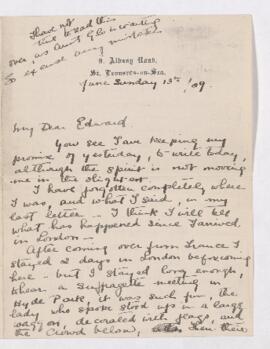 I have not
time to read this
over, as Aunt Glo is waiting
So excuse any mistakes
9, Albany Road,
St. Leonards-on-Sea.
June Sunday 13th / 09
My Dear Edward
You see I am keeping my
promise of yesterday, to write today,
although the spirit is not moving
me in the slightest.
I have forgotten completely where
I was, and what I said, in my
last letter - I think I will tell
what has happened since I arrived
in London -
After coming over from France I
stayed 2 days in London before coming
here - but I stayed long enough,
to hear a Suffragette meeting in
Hyde Park, it was such fun, the
lady who spoke stood up in a large
waggon, decorated with flags, and
the crowd below, then there